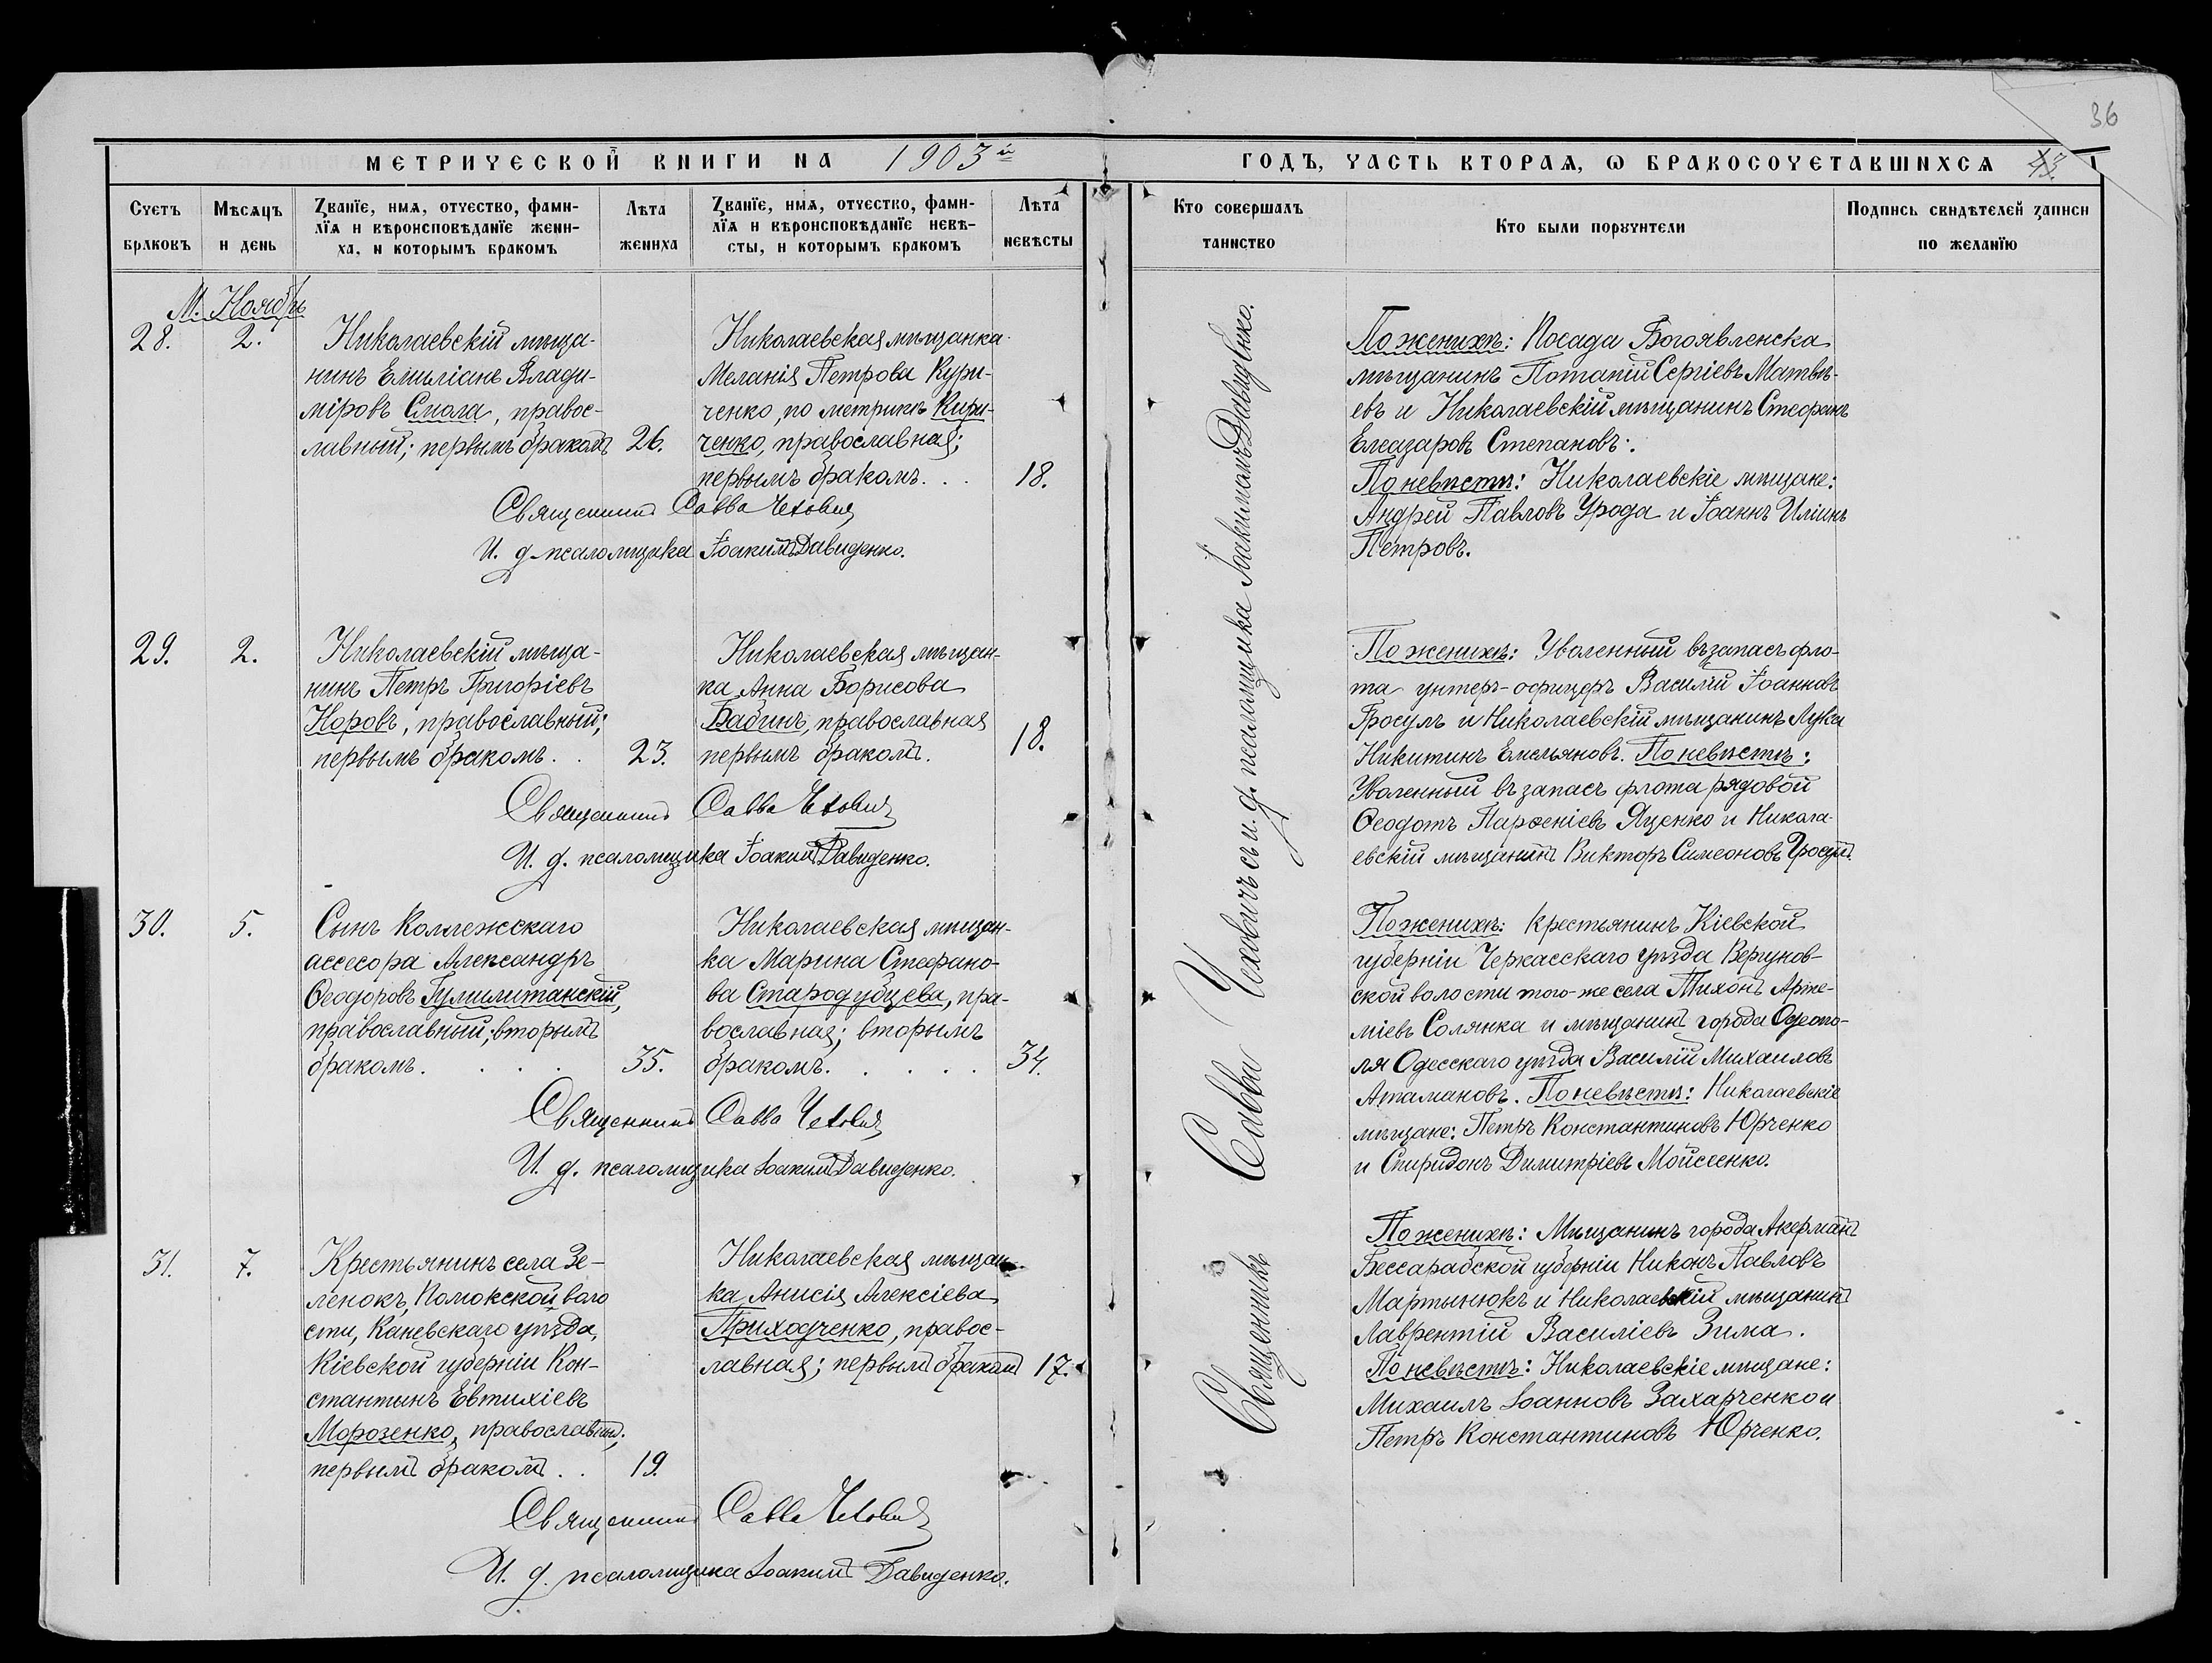 36
МЕТРИЧЕСКОЙ КНИГИ НА 1903й
ГОДЪ, ЧАСТЬ ВТОРАѦ, Ѡ БРАКОСОЧЕТАВШИХСѦ 43.
Счетъ браковъ
Мѣсѧцъ и день
Званїе, имѧ, отчество, фами-
лїѧ и вѣроисповѣданїе жени-
ха, и которымъ бракомъ
Лѣта жениха
Званїе, имѧ, отчество, фами-
лїѧ и вѣроисповѣданїе невѣ-
сты, и которымъ бракомъ
Лѣта невѣсты
Кто совершалъ таинство
Кто были порꙋчители
Подпись свидѣтелей записи
по желанїю
М. Ноябрь
28.
2.
Николаевскій мѣща-
нинъ Емиліанъ Влади-
міровъ Смага, правос-
лавный; первымъ бракомъ
26.
Николаевская мѣщанка
Меланія Петрова Кури-
ченко, по метрикѣ Кири-
ченко, православная;
первымъ бракомъ. . .
18.
Священникъ Савва Чехович
И. д. псаломщика Іоакимъ Давиденко.
По женихѣ: Посада Богоявленска
мѣщанинъ Потапій Сергіевъ Матвѣ-
евъ и Николаевскій мѣщанинъ Стефанъ
Елеазаровъ Степановъ.
По невѣстѣ: Николаевскіе мѣщане:
Андрей Павловъ Урода и Іоаннъ Илiинъ
Петровъ.
29.
2.
Николаевскій мѣща-
нинъ Петръ Григоріевъ
Норовъ, православный;
первымъ бракомъ. .
23.
Николаевская мѣщан-
ка Анна Борисова
Бабинъ, православная
первымъ бракомъ.
18.
Священникъ Савва Чехович
И. д. псаломщика Іоакимъ Давиденко.
По женихѣ: Уволенный въ запасъ фло-
та унтеръ-офицеръ Василій Іоанновъ
Гросулъ и Николаевскій мѣщанинъ Лука
Никитинъ Емельяновъ. По невѣстѣ:
Уволенный въ запасъ флота рядовой
Ѳеодотъ Парѳеніевъ Яценко и Никола-
евскій мѣщанинъ Викторъ Симеоновъ
30.
5.
Сынъ Коллежскаго
ассесора Александръ
Ѳеодоровъ Гумилитанскій,
православный; вторымъ
бракомъ. . . .
35.
Николаевская мѣщан-
ка Марина Стефано-
ва Стародубцева, пра-
вославная; вторымъ
бракомъ. . . . .
34.
Священникъ Савва Чехович
И. д. псаломщика Іоакимъ Давиденко.
По женихѣ: крестьянинъ Кіевской
губерніи Черкасскаго уѣзда Вергунов-
ской волости того-же села Тихонъ Арте-
міевъ Солянка и мѣщанинъ города Овидіопо-
ля Одесскаго уѣзда Василій Михаиловъ
Атамановъ. По невѣстѣ: Николаевскіе
мѣщане: Петръ Константиновъ Юрченко
и Спиридонъ Димитріевъ Мойсеенко.
31.
7.
Крестьянинъ села Зе-
ленокъ, Потокской воло
сти, Каневскаго уѣзда,
Кіевской губерніи Кон-
стантинъ Евтихіевъ
Морозенко, православный;
первымъ бракомъ . .
19.
Николаевская мѣщан-
ка Анисія Алексіева
Приходченко, правос-
лавная; первымъ бракомъ
17.
Священникъ Савва Чехович
И. д. псаломщика Іоакимъ Давиденко.
По женихѣ: Мѣщанинъ города Акерманъ
Бессарабской губерніи Никонъ Павловъ
Мартынюкъ и Николаевскій мѣщанинъ
Лаврентій Василіевъ Зима.
По невѣстѣ: Николаевскіе мѣщане:
Михаилъ Іоанновъ Захарченко и
Петръ Константиновъ Юрченко.
Священникъ Савва Чеховичъ съ и. д. псаломщика Іоакимомъ Давиденко.